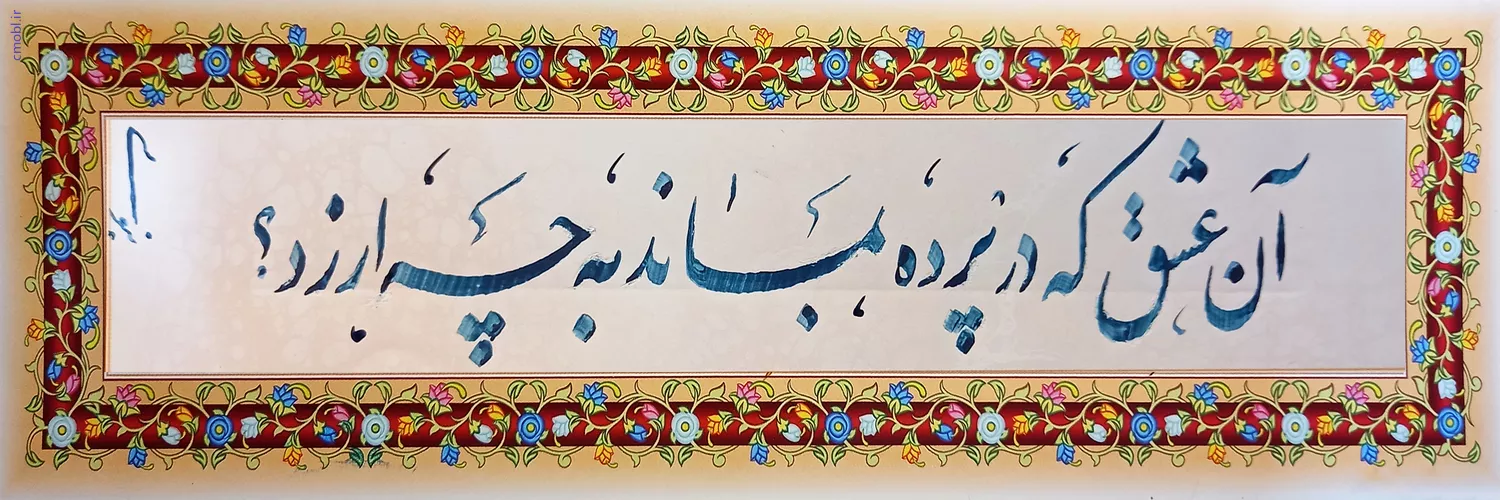 cmobl.ir
آن عشق که در پرده بماند به چه ارزد؟